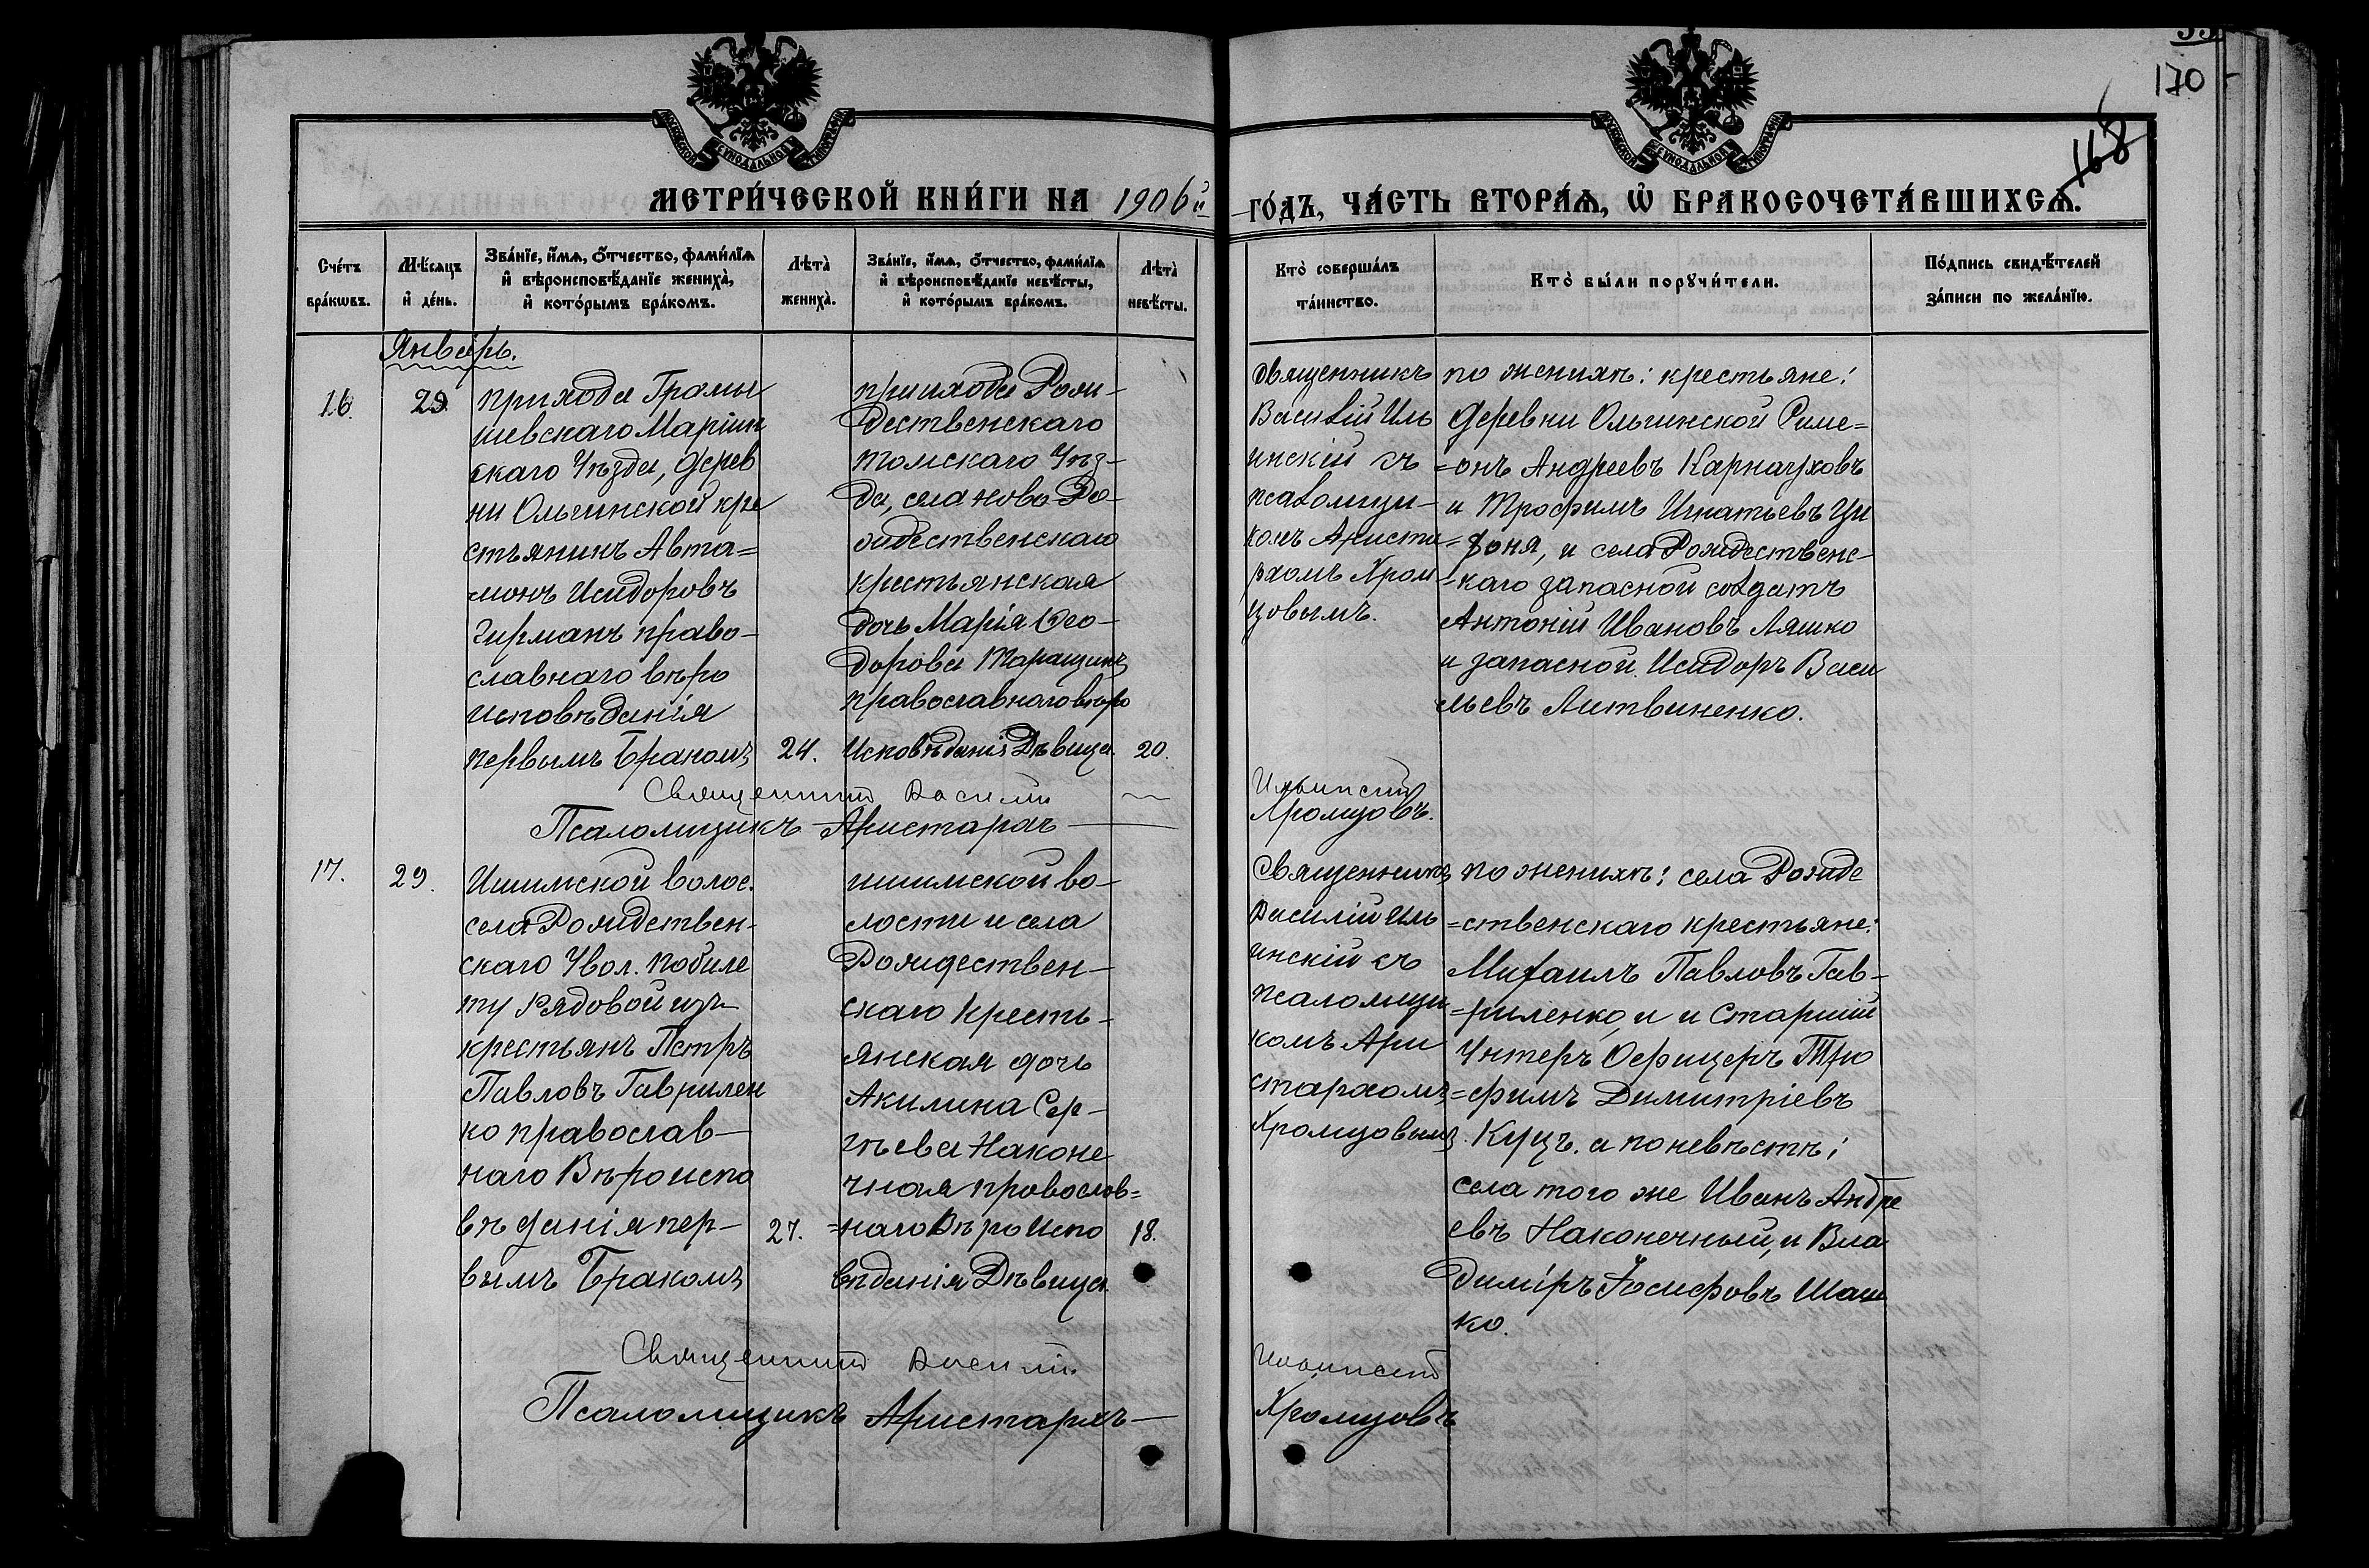 170
168
МЕТРИ́ЧЕСКОЙ КНИ́ГИ НА 1906й
ГО́ДЪ, ЧА́СТЬ ВТОРА́Ѧ, Ѡ҆ БРАКОСОЧЕТА́ВШИХСѦ.
Сче́тъ
бра́кѡвъ.
Мѣ́сѧцъ
и҆ де́нь.
Зва́нїе, и҆́мѧ, ѻ҆́тчество, фами́лїѧ
и҆ вѣроисповѣ́данїе жениха̀,
и҆ кото́рымъ бра́комъ.
Лѣта̀
жениха̀.
Зва́нїе, и҆́мѧ, ѻ҆́тчество, фами́лїѧ
и҆ вѣроисповѣ́данїе невѣ́сты,
и҆ кото́рымъ бра́комъ.
Лѣта̀
невѣ́сты.
Кто̀ соверша́лъ
та́инство.
Кто̀ бы́ли порꙋчи́тели.
По́дпись свидѣ́телей
за́писи по жела́нїю.
Январь.
16.
29.
прихода Громы
шевскаго Маріин
скаго Уѣзда, дерев
ни Ольгинской кре
стьянинъ Авта=
монъ Исидоровъ
Гирманъ право-
славнаго вѣро
исповѣданія
первымъ бракомъ
24.
прихода Рож-
дественскаго
томскаго Уѣз-
да, села ново Ро-
ждественскаго
крестьянская
дочь Марія Ѳео-
дорова Таращукъ
православнаго вѣро
Исповѣданія Дѣвица.
20.
Священникъ
Василій Иль
инскій съ
псаломщи-
комъ Ариста
рхомъ Хром
цовымъ.
по женихѣ: крестьяне:
деревни Ольгинской Симе=
=онъ Андреевъ Карнауховъ
и Трофимъ Игнатьевъ Ци
=боня, и села Рождественс-
=каго запасной солдатъ
Антоній Ивановъ Ляшко
и запасной Исидоръ Васи
льевъ Литвиненко.
Священникъ Василій
Ильинскій
Псаломщикъ Аристархъ
Хромцовъ.
17.
29.
Ишимской волос.
села Рождествен-
скаго Увол. по биле
ту Рядовой изъ
крестьянъ Петръ
Павловъ Гаврилен
ко православ-
наго Вѣроиспо
вѣданія пер-
вымъ Бракомъ
27.
ишимской во-
лости и села
Рождествен-
скаго кресть-
янская дочь
Акилина Сер-
гѣева Наконе
чная провослов=
=наго Вѣро Испо
вѣданія Дѣвица.
18.
Священникъ
Василій Иль
инскій съ
псаломщи
комъ Ари
стархомъ
Хромцовымъ.
по женихѣ: села Рожде
=ственскаго крестьяне:
Михаилъ Павловъ Гав-
=риленко, и и Старшій
Унтеръ Офицеръ Тро
=фимъ Димитріевъ
Куцъ. а по невѣстѣ:
села того же Иванъ Андре
евъ Наконечный, и Вла
димiръ Іосифовъ Шаш
ко.
Священникъ Василій
Ильинскій
Псаломщикъ Аристархъ
Хромцовъ